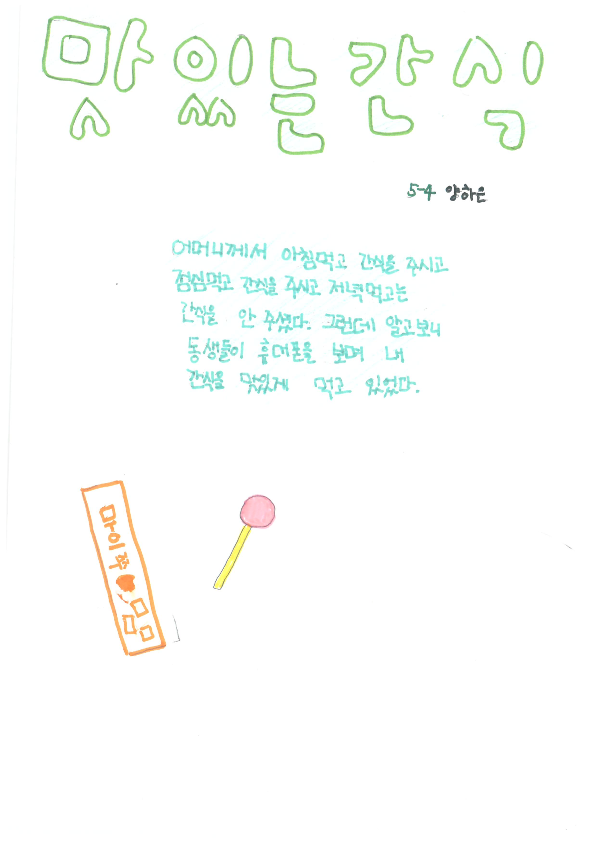 맛있는간식
5-4 양하은
어머니께서 아침먹고 간식을 주시고
점심먹고 간식을 주시고 저녁먹고는
간식을 안 주셨다. 그런데 알고보니
동생들이 휴대폰을 보며 내
간식을 맛있게 먹고 있었다.
마이쭈